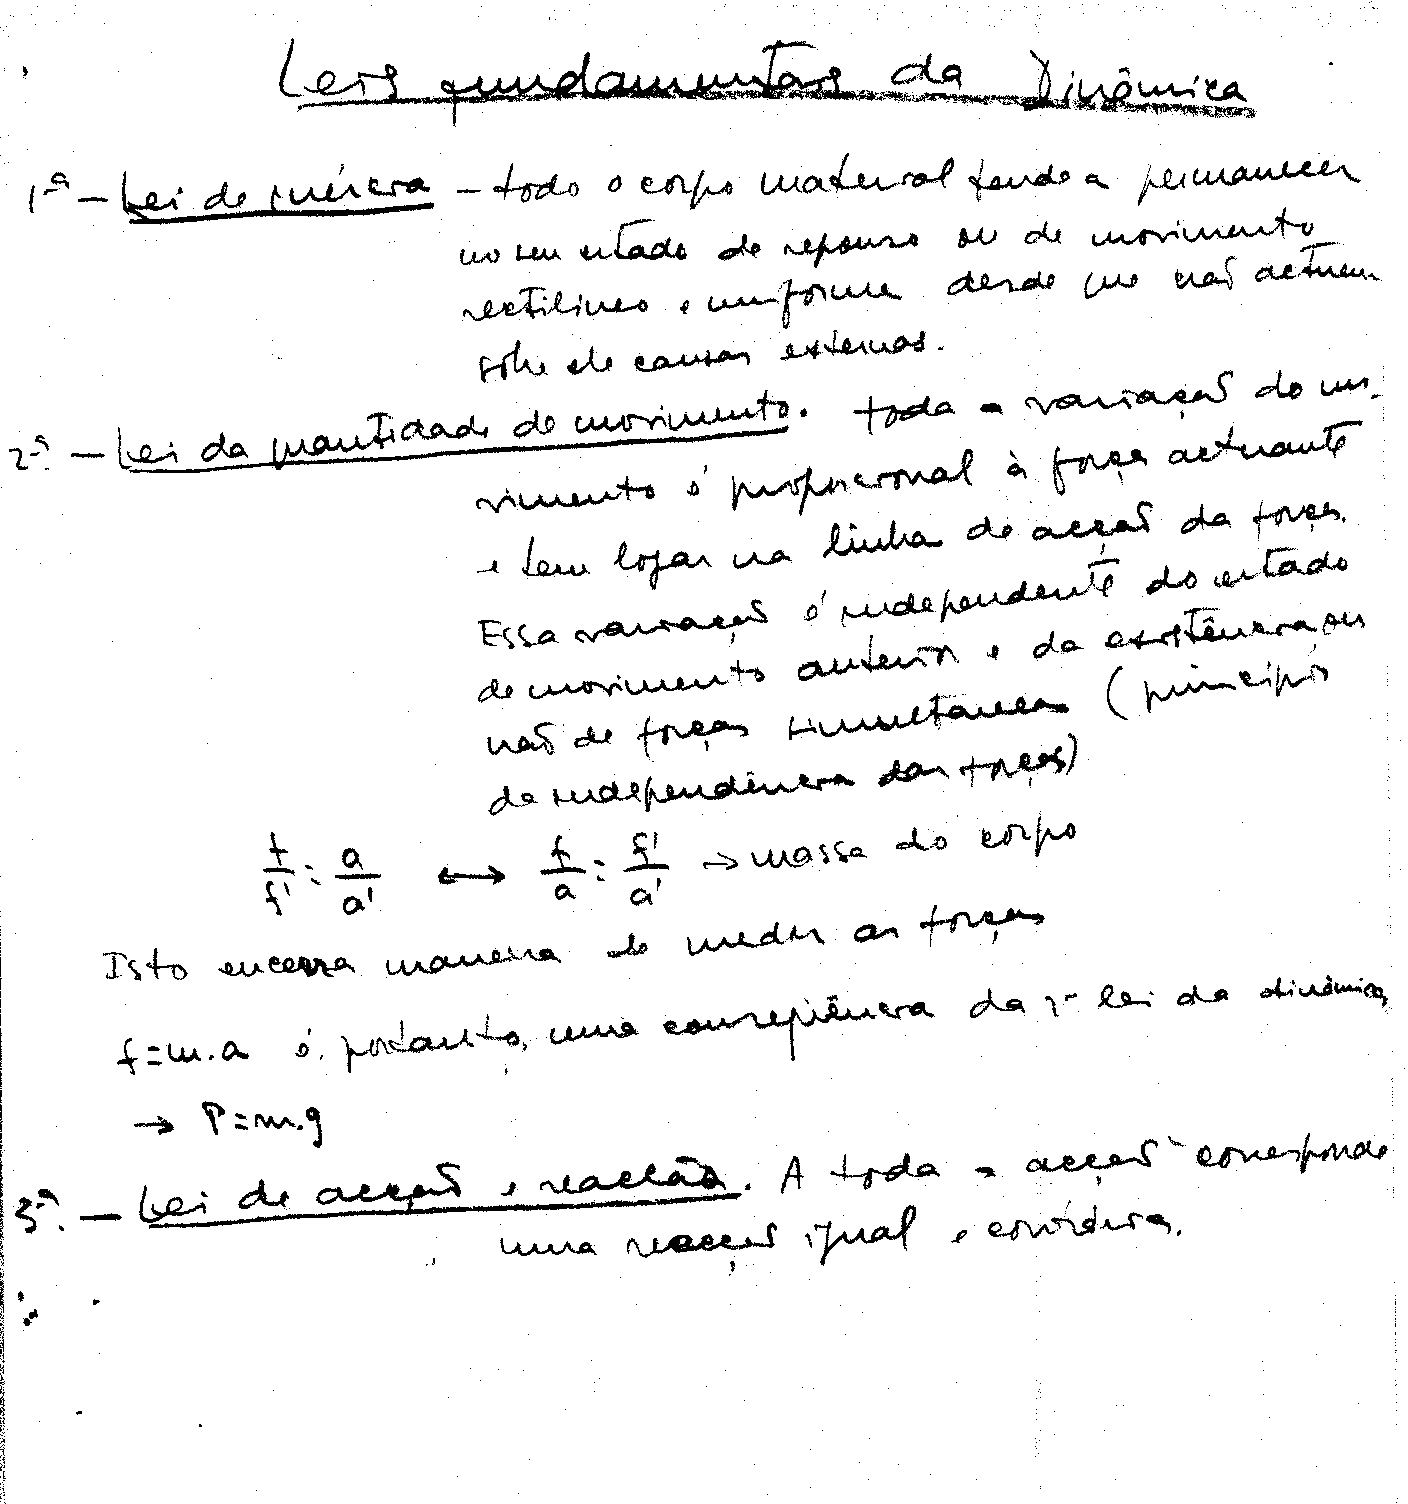 Leis fundamentais da Dinâmica
1ª - Lei de inércia - todo o corpo material tende a permanecer
no seu estado de repouso ou de movimento
rectilineo e uniforme desde que não actuem
sobre ele causas externas.
2ª. - Lei da quantidade de movimento. toda a variação do mo-
vimento é proporcional à força actuante
e tem logar na linha de acção da força.
Essa variação é independente do estado
de movimento anterior e da existência ou
não de forças simultaneas (principio
da independência das forças)
f/f' = a/a' ↔ f/a = f'/a' → massa do corpo
Isto encerra maneira de medir as forças
f=m.a é, portanto, uma consequência da 2ª lei da dinâmica
→ P=m.g
3ª. - Lei de acção e reacção. A toda a acção corresponde
uma reacção igual e contrária.